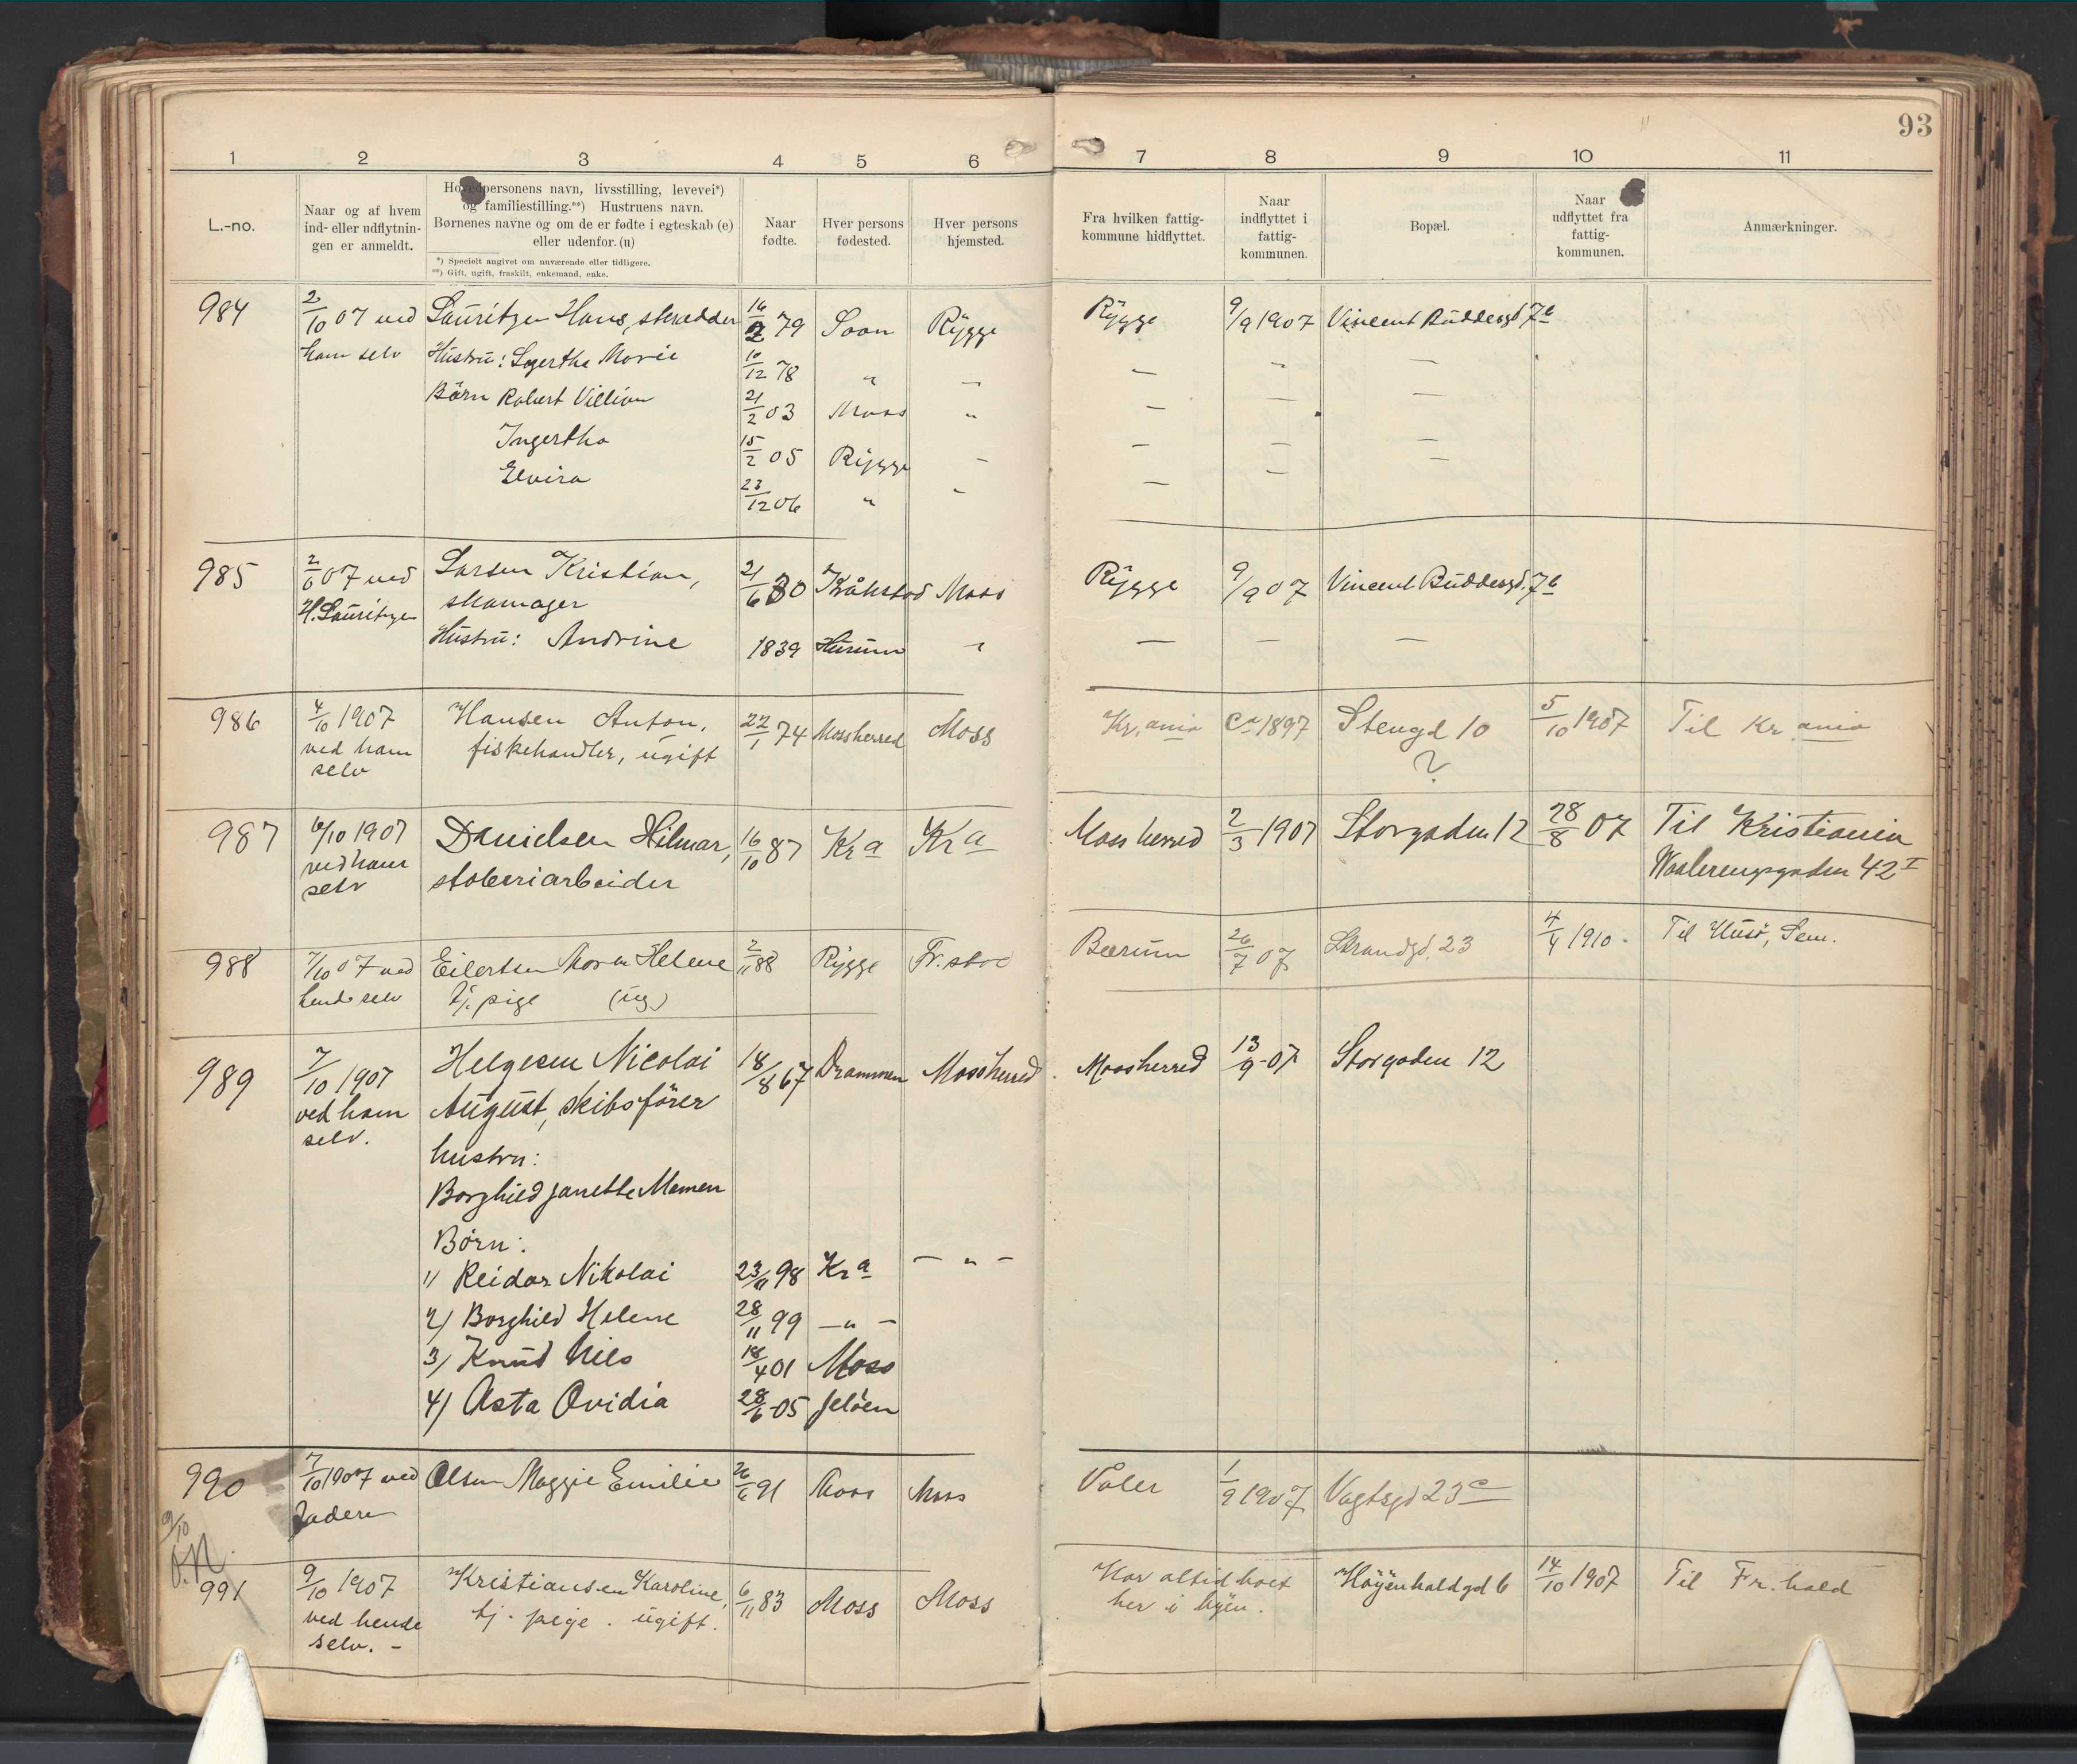 93
1 2 3 4 5 6 7 8 9 10 11
L.-no.
Naar og af hvem
ind- eller udflytnin-
gen er anmeldt.
Hovedpersonens navn, livsstilling, levevei*)
og familiestilling.**) Hustruens navn.
Børnenes navne og om de er fødte i egteskab (e)
eller udenfor. (u)
*) Specielt angivet om nuværende eller tidligere.
**) Gift, ugift, fraskilt, enkemand, enke.
Naar
fødte.
Hver persons
fødested.
Hver persons
hjemsted.
Fra hvilken fattig-
kommune hidflyttet.
Naar
indflyttet i
fattig-
kommunen.
Bopæl.
Naar
udflyttet fra
fattig-
kommunen.
Anmærkninger.
984 2/10 07 ved Lauritzen Hans, skrædder 16/2 79 Soon Rygge Rygge 9/9 1907 Vincent Buddesgd 7b
ham selv Hustru: Marie 10/12 78 " — — — —
Börn Robert Villiam 21/2 03 Moss " — — —
Ingertha 15/2 05 Rygge — — — —
Elvira 23/12 06 " " — — —
985 07 ved Larsen Kristian, 21/6 30 Kråkstad Moss Rygge 9/9 07 Vincent Buddesgd. 7b
H. Lauritzen skomager
Hustru: Andrine 1839 Hurum " — — —
986 4/10 1907 Hansen Anton, 22/1 74 Mossherred Moss Kr.ania Ca 1897 Stengd 10 5/10 1907 Til Kr.ania
ved ham fiskehandler, ugift ?
selv
987 6/10 1907 Danielsen Hilmar, 16/10 87 Kra Kra Mossherred 2/3 1907 Storgaden 12 28/8 07 Til Kristiania
ved ham støberiarbeider Waalerengsgaden 42 I
selv
988 7/10 07 ved Eilertsen Helene 2/11 88 Rygge Fr.stad Bærum 26/7 07 Strandgd. 23 4/4 1910. Til Husø, Sem.
hende selv Tj. pige (ug.)
989 7/10 1907 Helgesen Nicolai 18/8 67 Drammen Mossherred Mossherred 13/9-07 Storgaden 12
ved ham August, skibsfører
selv. hustru:
Borghild Janette Mamen
Børn:
1) Reidar Nikolai 23/11 98 Kra — " —
2) Borghild Helene 28/11 99 — " —
3) Knud Nils 18/4 01 Moss
4) Asta Ovidia 28/6-05 Jeløen
990 7/10 1907 ved Olsen Maggie Emilie 26/6 91 Moss Moss Våler 1/9 1907 Vogtsgd 23c
faderen
9/10
O.N.
991 9/10 1907 Kristiansen Karoline, 6/11 83 Moss Moss Har altid boet Höyenhaldgd 6 14/10 1907 Til Fr.hald
ved hende tj. pige. ugift. her i byen.
selv. -